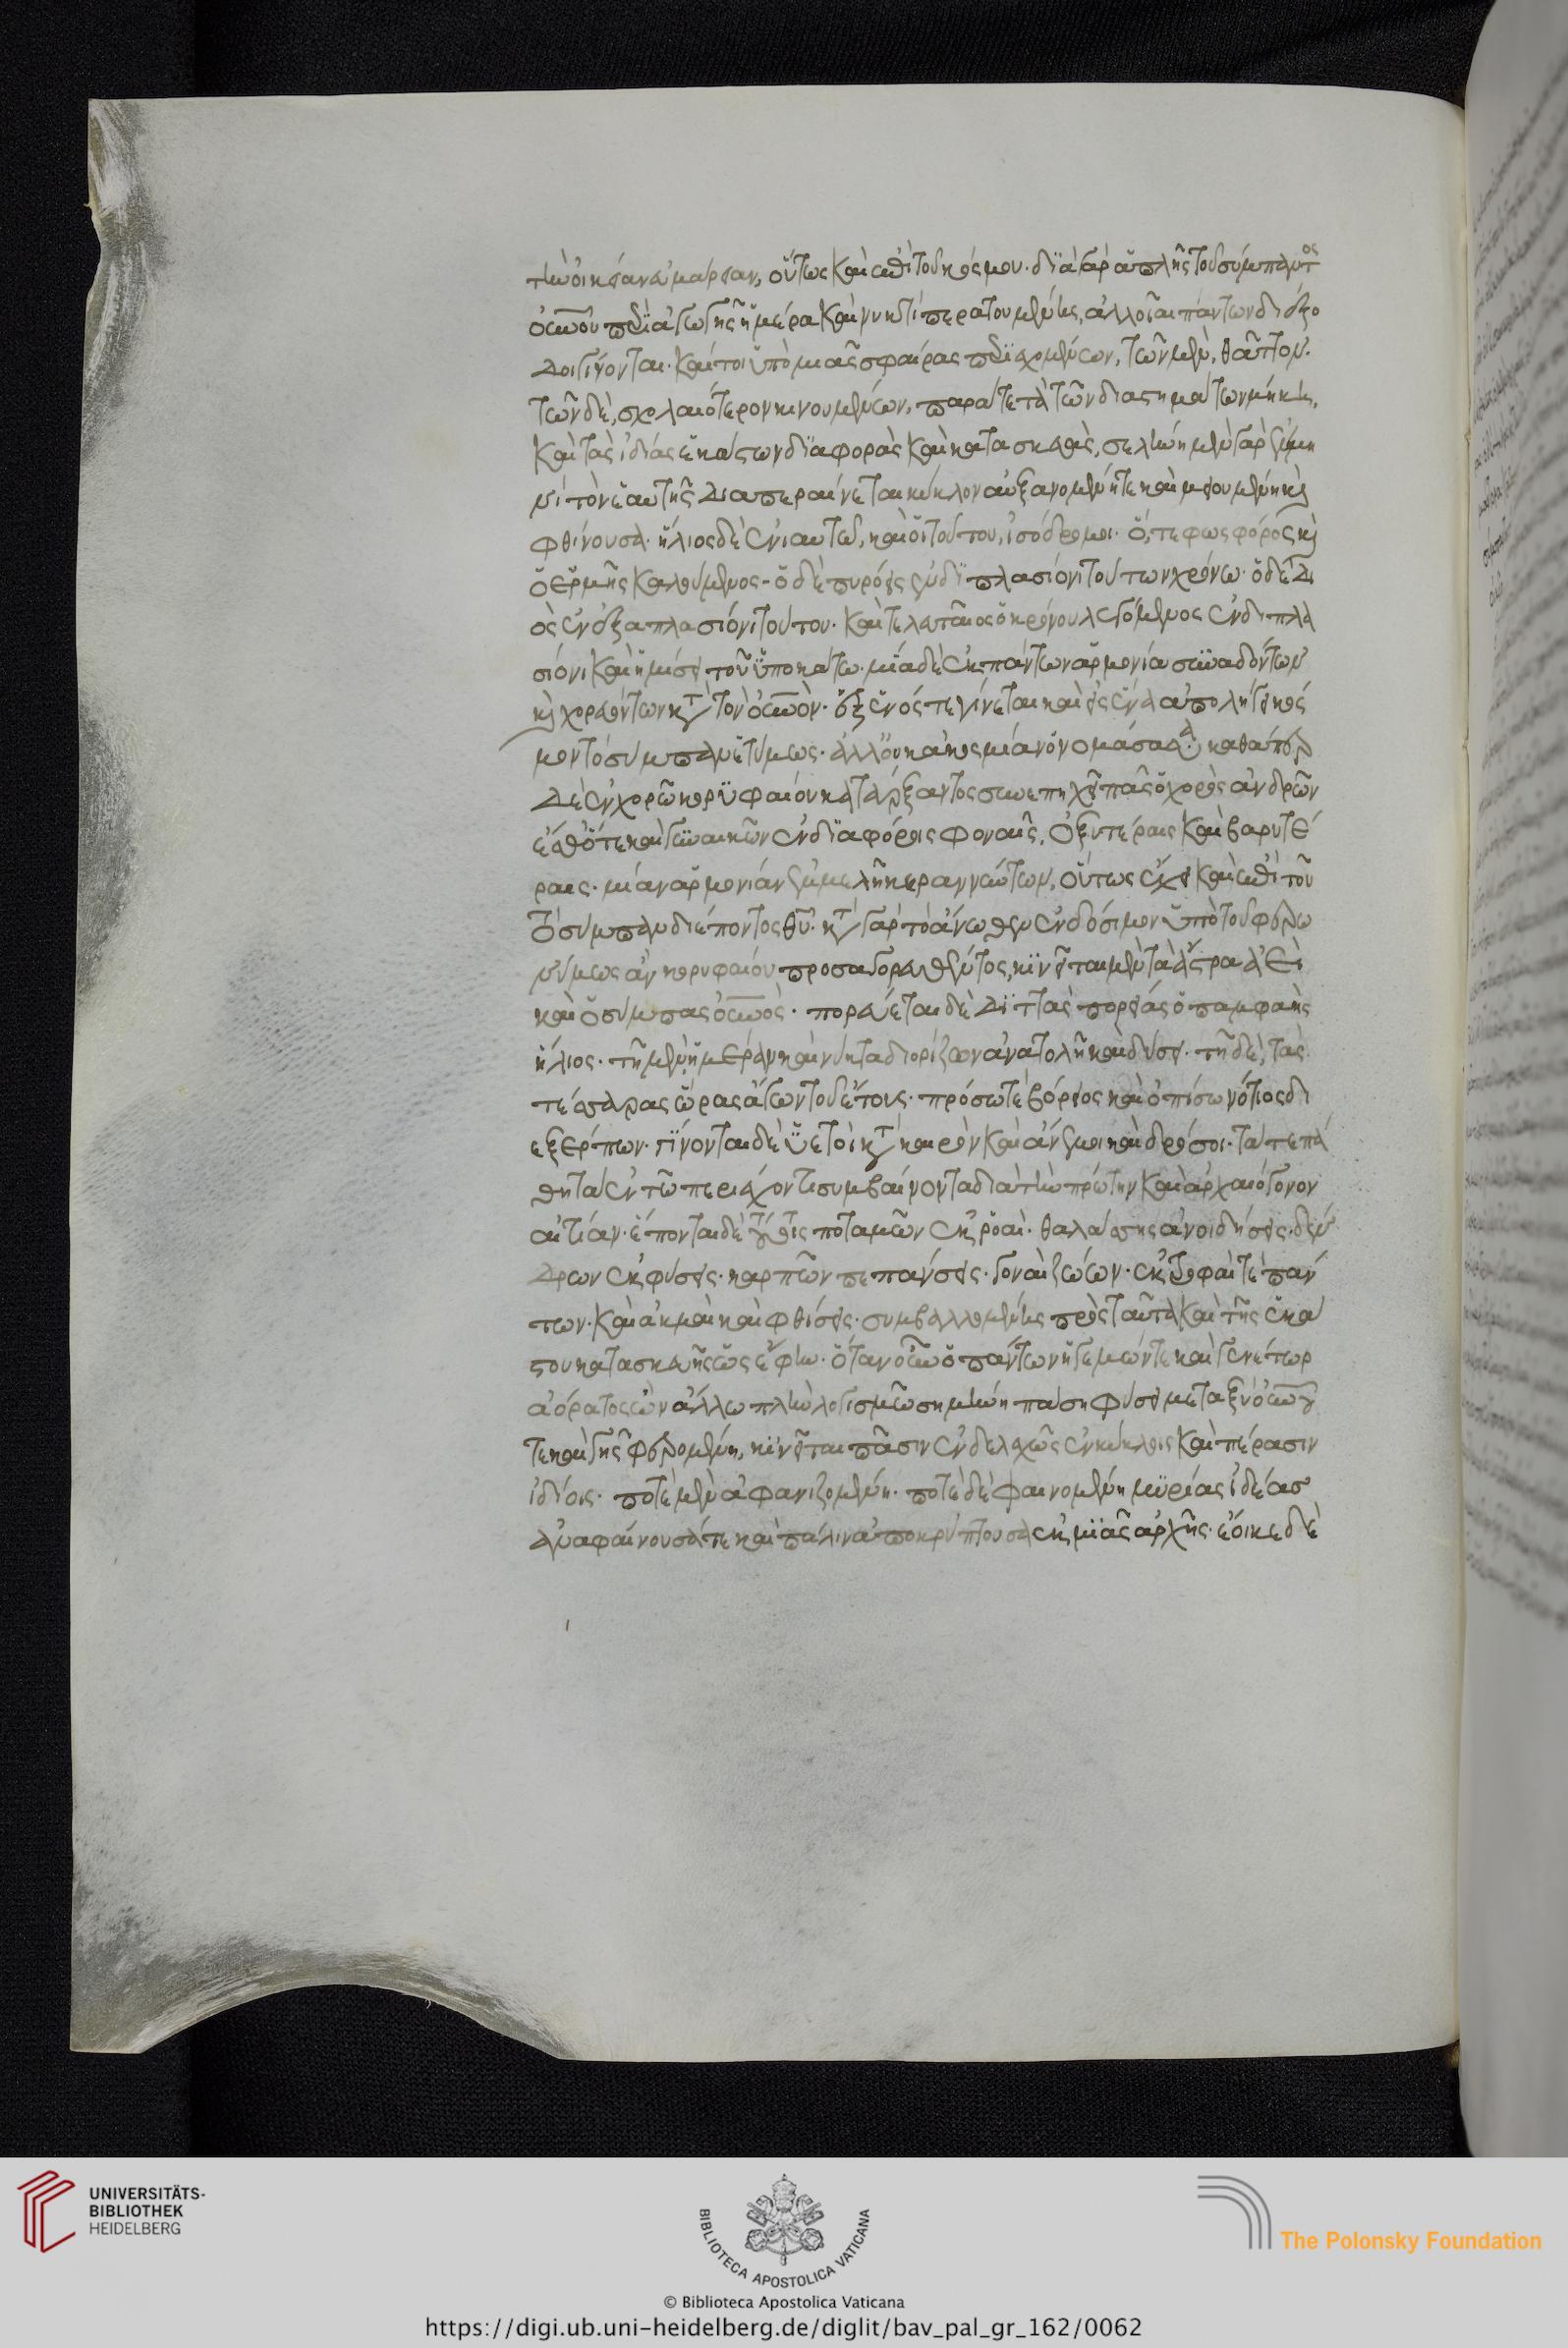 τὴν οἰκείαν εὐμάρειαν, οὕτως καὶ ἐπὶ τοῦ κόσμου· διὰ γὰρ ἁπλῆς τοῦ σύμπαντος
οὐνοῦ περιαγωγῆς ἡμέρα καὶ νυκτὶ περατουμένης, ἀλλοῖαι πάντων διέξο
δοι γίνονται· καίτοι ὑπὸ μιᾶς σφαίρας περιεχομένων, τῶν μὲν, θᾶττον·
τῶν δὲ, σχολαιότερον κινουμένων, παρά τε τὰ τῶν διαστημάτων μήκη,
καὶ τὰς ἰδίας ἑκάστων διαφορὰς καὶ κατασκευὰς, σελήνη μὲν γὰρ ἐν μη
νὶ τὸν ἑαυτῆς διαπεραίνεται κύκλον αὐξανομένη τε καὶ μειουμένη καὶ
φθίνουσα· ἥλιος δὲ ἐνιαυτῶ, καὶ οἱ τούτου, ἰσόδρομοι· ὅ, τε φωσφόρος καὶ
ὁ ἑρμῆς καλούμενος· ὁ δὲ πυρόεις ἐν διπλασίονι τούτων χρόνω· ὁ δὲ δι
ὸς ἐν ἑξαπλασίονι τούτου· καὶ τελευταῖος ὁ κρόνου λεγόμενος ἐν διπλα
σίονι καὶ ἡμίσει τοῦ ὑποκάτω· μία δὲ ἐκ πάντων ἁρμονία συναδόντων
καὶ χορευόντων κατὰ τὸν οὐνὸν· ἐξ ἑνός τε γίνεται καὶ εἰς ἓν ἀπολήγει κόσ
μον τὸ σύμπαν ἐτύμως· ἀλλ' οὐκ ἀκοσμίαν ὀνομάσας· καθάπερ
δὲ ἐν χορῶ κορυφαίου κατάρξαντος συνεπηχεῖ πᾶς ὁ χορὸς ἀνδρῶν
ἔσθ' ὅτε καὶ γυναικῶν ἐν διαφόροις φοναῖς, ὀξυτέραις καὶ βαρυτέ
ραις· μίαν ἁρμονίαν ἐμμελῆ κεραννύντων, οὕτως ἔχει καὶ ἐπὶ τοῦ
τὸ σύμπαν διέποντος θυ· κατὰ γὰρ τὸ ἄνωθεν ἐνδόσιμον ὑπὸ τοῦ φερω
νύμως ἂν κορυφαίου προσαγορευθέντος, κινεῖται μὲν τὰ ἄστρα ἀεὶ
καὶ ὁ σύμπας οὐνὸς· πορεύεται δὲ διττὰς πορείας ὁ παμφαὴς
ἥλιος· τῆ μὲν ἡμέραν καὶ νύκτα διορίζων ἀνατολῆ καὶ δύσει· τῆ δὲ, τὰς
τέσσαρας ὥρας ἄγων τοῦ ἔτους· πρόσω τε βόρειος καὶ ὀπίσω νότιος δι
εξέρπων· γίνονται δὲ ὑετοὶ κατὰ καιρὸν καὶ ἄνεμοι καὶ δρόσοι· τά τε πά
θη τὰ ἐν τῶ περιέχοντι συμβαίνοντα διὰ τὴν πρώτην καὶ ἀρχαιόγονον
αἰτίαν· ἕπονται δὲ τούτοις ποταμῶν ἐκροαὶ· θαλάσσης ἀνοιδήσεις· δέν
δρων ἐκφύσεις· καρπῶν πεπάνσεις· γοναὶ ζώων· ἐκτροφαί τε πάν
των· καὶ ἀκμαὶ καὶ φθίσεις· συμβαλλομένης πρὸς ταῦτα καὶ τῆς ἑκά
στου κατασκευῆς ὡς ἔφην· ὅταν οὖν ὁ πάντων ἡγεμών τε καὶ γενέτωρ
ἀόρατος ὢν ἄλλω πλὴν λογισμῶ σημήνη πάση φύσει μεταξὺ οὐνοῦ
τε καὶ γῆς φερομένη, κινεῖται πᾶσιν ἐνδελεχῶς ἐν κύκλοις καὶ πέρασιν
ἰδίοις· ποτὲ μὲν ἀφανιζομένη· ποτὲ δὲ φαινομένη μυρίας ἰδέας
ἀναφαίνουσά τε καὶ πάλιν ἀποκρύπτουσα ἐκ μιᾶς ἀρχῆς· ἔοικε δὲ
UNIVERSITÄTS-
BIBLIOTHEK
HEIDELBERG
BIBLIOTECA APOSTOLICA VATICANA
The Polonsky Foundation
© Biblioteca Apostolica Vaticana
https://digi.ub.uni-heidelberg.de/diglit/bav_pal_gr_162/0062